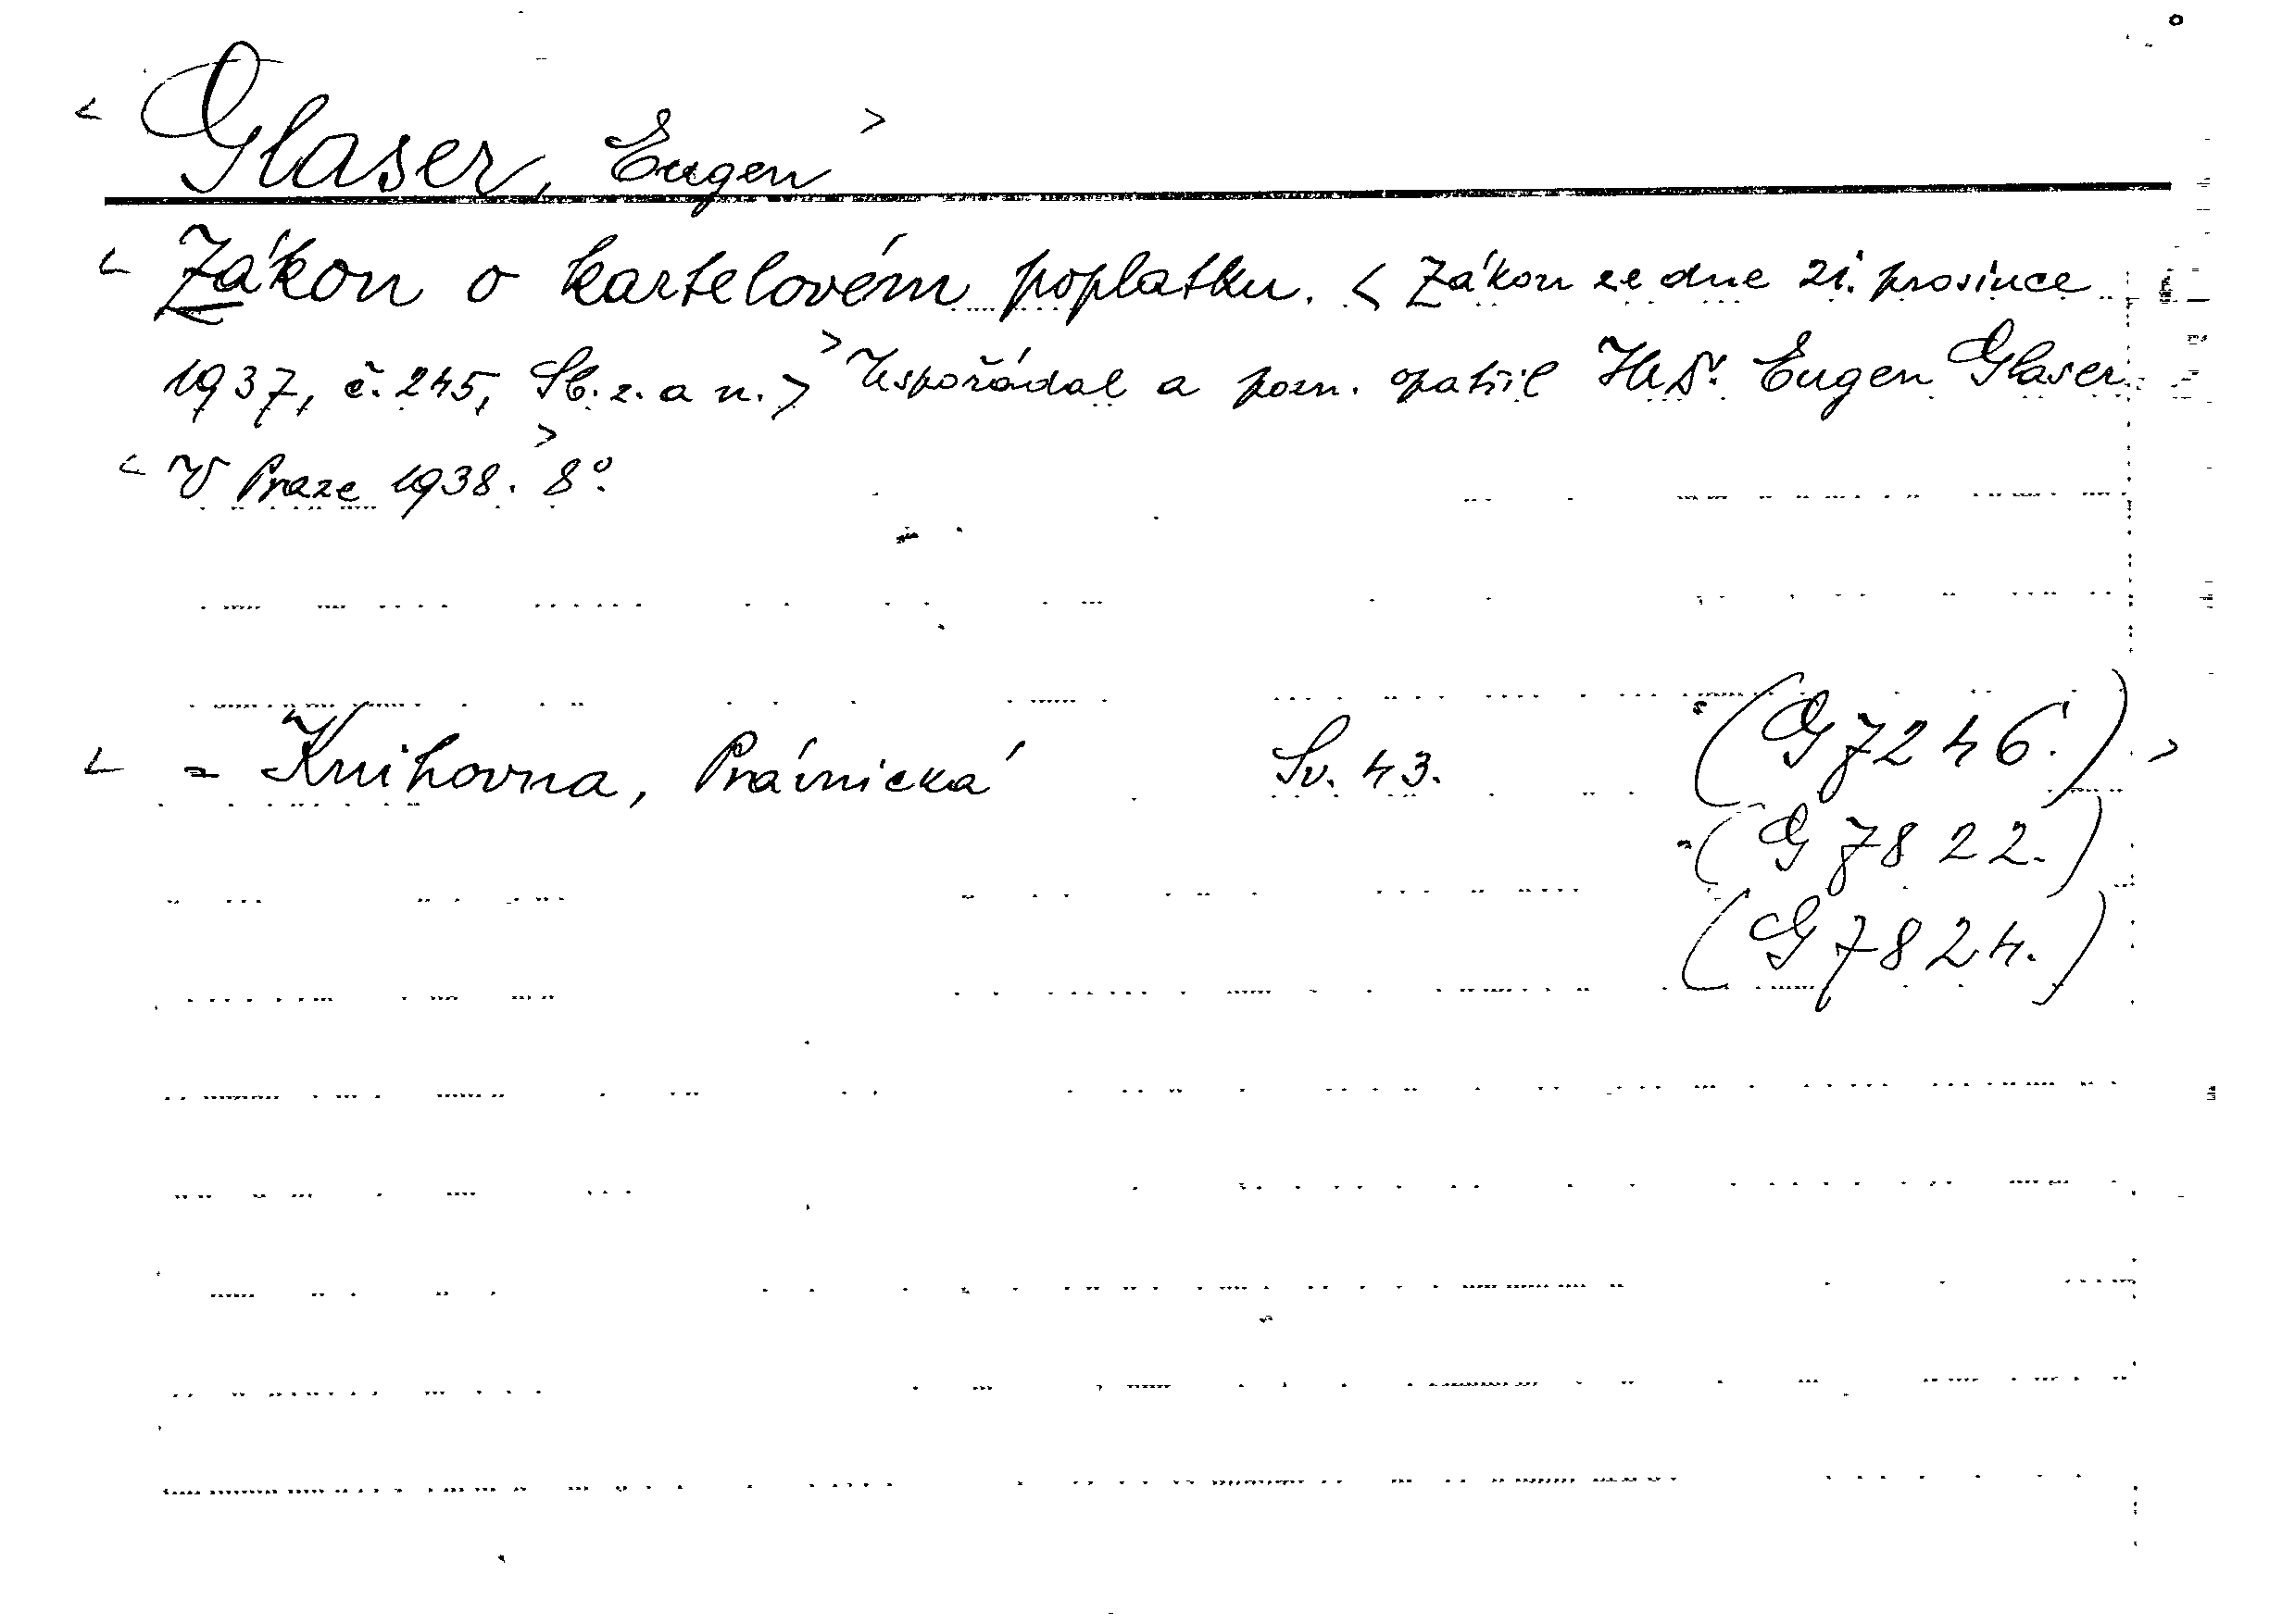 < Glaser, Eugen >
< Zákon o kartelovém poplatku. < Zákon ze dne 21. prosince
1937, č. 245, Sb. z. a n. > > Uspořádal a pozn. opatřil JUDr. Eugen Glaser
< V Praze 1938. > 8°.
< = Knihovna, Právnická Sv. 43. (G 7246.) >
(G 7822.)
(G 7824.)